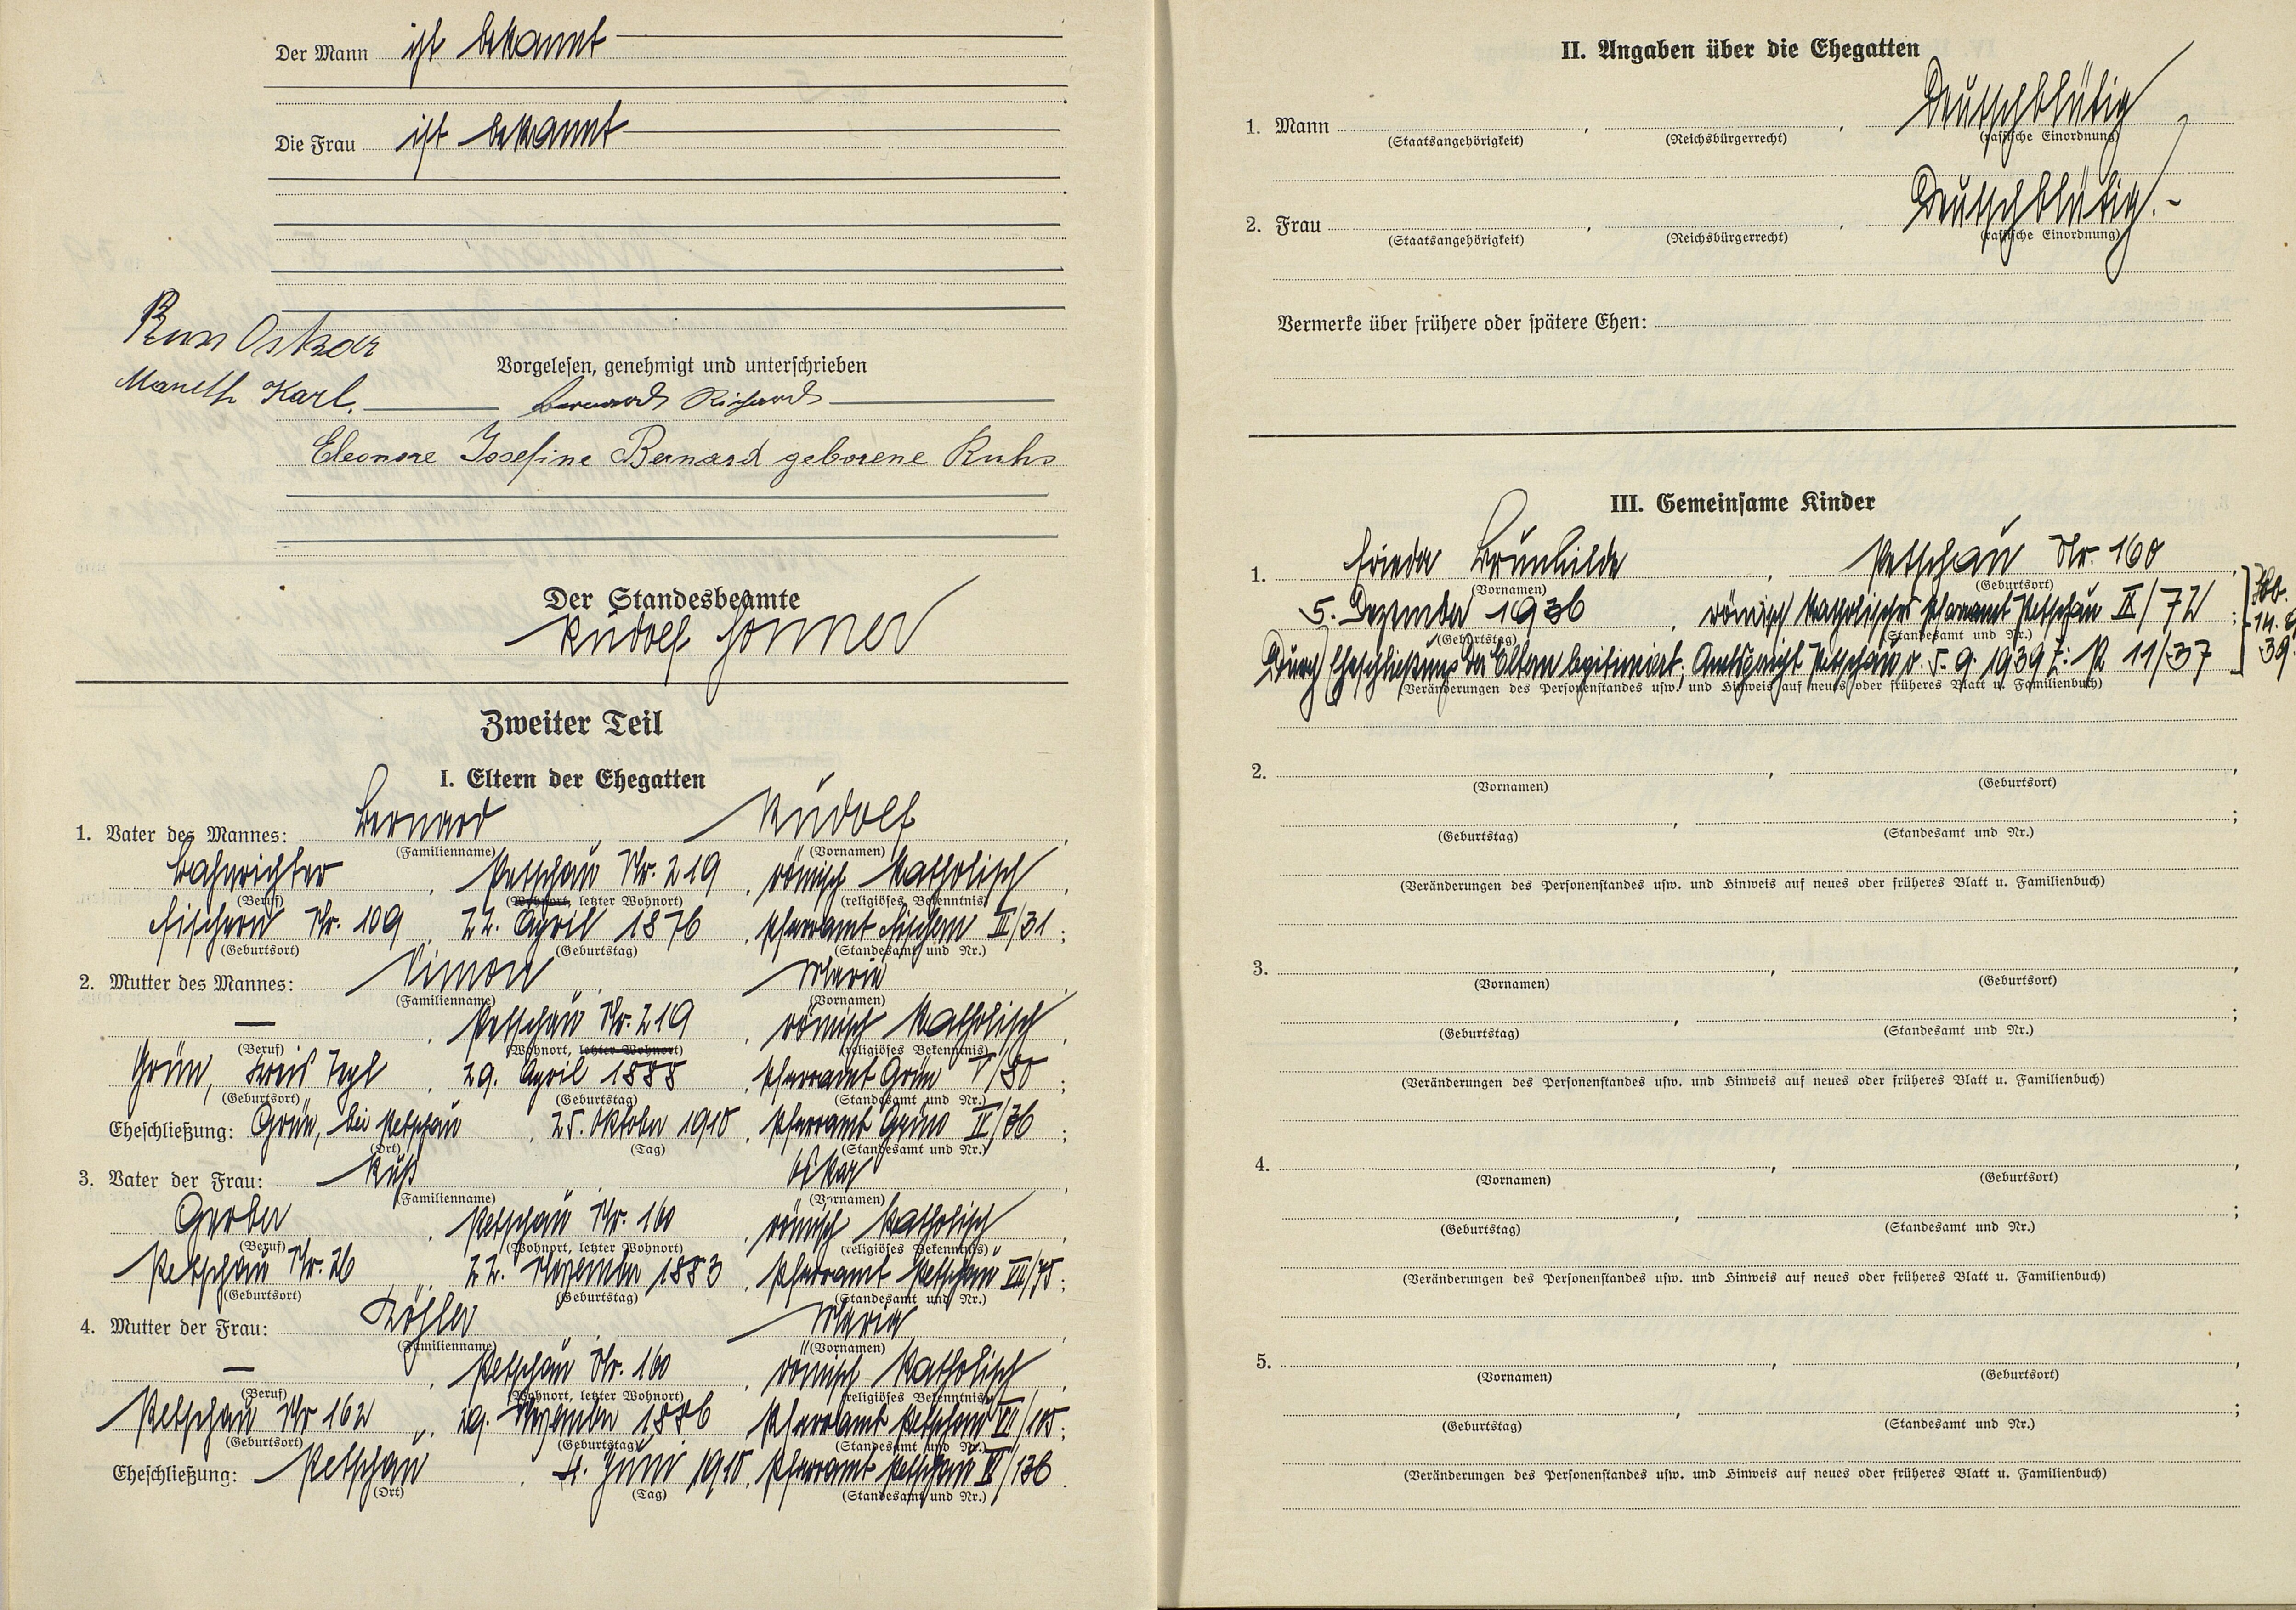 Der Mann ist bekannt
Die Frau ist bekannt
Oskar
Vorgelesen, genehmigt und unterschrieben
Karl. Bernard Richard
Eleonore Josefine Bernard geborene Ruhs
Der Standesbeamte
Rudolf
Zweiter Teil
I. Eltern der Ehegatten
1. Vater des Mannes: Bernard Rudolf
(Familienname) (Vornamen)
Bahnrichter, Petschau Nr. 219, römisch katholisch,
(Beruf) (Wohnort, letzter Wohnort) (religiöses Bekenntnis)
Fischern Nr. 109, 22. April 1876, Pfarramt Fischern III/31;
(Geburtsort) (Geburtstag) (Standesamt und Nr.)
2. Mutter des Mannes: Simon, Maria,
(Familienname) (Vornamen)
—, Petschau Nr. 219, römisch katholisch,
(Beruf) (Wohnort, letzter Wohnort) (religiöses Bekenntnis)
Grün, Kreis Tepl, 29. April 1888, Pfarramt Grün V/80;
(Geburtsort) (Geburtstag) (Standesamt und Nr.)
Eheschließung: Grün, bei Petschau, 25. Oktober 1910, Pfarramt Grün IV/36;
(Ort) (Tag) (Standesamt und Nr.)
3. Vater der Frau: Oskar,
(Familienname) (Vornamen)
Gerber, Petschau Nr. 160, römisch katholisch,
(Beruf) (Wohnort, letzter Wohnort) (religiöses Bekenntnis)
Petschau Nr. 26, 22. November 1883, Pfarramt Petschau VII/75;
(Geburtsort) (Geburtstag) (Standesamt und Nr.)
4. Mutter der Frau: Köhler, Maria,
(Familienname) (Vornamen)
—, Petschau Nr. 160, römisch katholisch,
(Beruf) (Wohnort, letzter Wohnort) (religiöses Bekenntnis)
Petschau Nr 162, 1886, Pfarramt Petschau
(Geburtsort) (Geburtstag) (Standesamt und Nr.)
Eheschließung: Petschau, 4. Juni 1910, Pfarramt Petschau
(Ort) (Tag) (Standesamt und Nr.)
II. Angaben über die Ehegatten
1. Mann, , Deutschblütig
(Staatsangehörigkeit) (Reichsbürgerrecht) (rassische Einordnung)
2. Frau, , Deutschblütig.-
(Staatsangehörigkeit) (Reichsbürgerrecht) (rassische Einordnung)
Vermerke über frühere oder spätere Ehen:
III. Gemeinsame Kinder
1. Frieda Brunhilde, Petschau Nr. 160,
(Vornamen) (Geburtsort)
5. Dezember 1936, römisch katholisches Pfarramt Petschau IX/72;
(Geburtstag) (Standesamt und Nr.)
Durch Eheschließung der Eltern legitimiert; Amtsgericht Petschau v. 5. 9. 1939 Z: P 11/37
(Veränderungen des Personenstandes usw. und Hinweis auf neues oder früheres Blatt u. Familienbuch)
39.
2. , ,
(Vornamen) (Geburtsort)
, ;
(Geburtstag) (Standesamt und Nr.)
(Veränderungen des Personenstandes usw. und Hinweis auf neues oder früheres Blatt u. Familienbuch)
3. , ,
(Vornamen) (Geburtsort)
, ;
(Geburtstag) (Standesamt und Nr.)
(Veränderungen des Personenstandes usw. und Hinweis auf neues oder früheres Blatt u. Familienbuch)
4. , ,
(Vornamen) (Geburtsort)
, ;
(Geburtstag) (Standesamt und Nr.)
(Veränderungen des Personenstandes usw. und Hinweis auf neues oder früheres Blatt u. Familienbuch)
5. , ,
(Vornamen) (Geburtsort)
, ;
(Geburtstag) (Standesamt und Nr.)
(Veränderungen des Personenstandes usw. und Hinweis auf neues oder früheres Blatt u. Familienbuch)